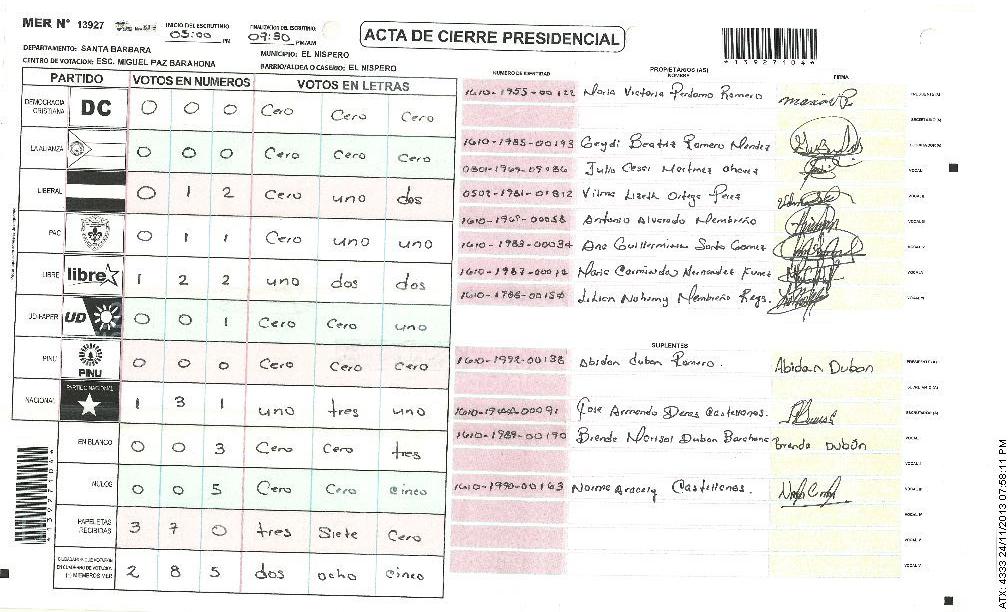 MER N° 13927
INICIO DEL ESCRUTINIO
05:00 PM
FINALIZACION DEL ESCRUTINIO
07:30 PM/AM
ACTA DE CIERRE PRESIDENCIAL
*13927104*
DEPARTAMENTO: SANTA BARBARA
MUNICIPIO: EL NISPERO
CENTRO DE VOTACION: ESC. MIGUEL PAZ BARAHONA
BARRIO/ALDEA O CASERIO: EL NISPERO
PARTIDO VOTOS EN NUMEROS VOTOS EN LETRAS
DEMOCRACIA CRISTIANA DC 0 0 0 Cero Cero Cero
LA ALIANZA 0 0 0 Cero Cero Cero
LIBERAL 0 1 2 Cero uno dos
PAC 0 1 1 Cero uno uno
LIBRE libre 1 2 2 uno dos dos
UD-FAPER UD 0 0 1 Cero Cero uno
PINU PINU 0 0 0 Cero Cero Cero
NACIONAL PARTIDO NACIONAL 1 3 1 uno tres uno
EN BLANCO 0 0 3 Cero Cero tres
NULOS 0 0 5 Cero Cero Cinco
PAPELETAS RECIBIDAS 3 7 0 tres Siete Cero
CIUDADANOS QUE VOTARON EN CUADERNO DE VOTACION (+) MIEMBROS MER 2 8 5 dos ocho cinco
NUMERO DE IDENTIDAD PROPIETARIOS (AS) NOMBRE FIRMA
1610-1955-00122 Maria Victoria Perdomo Romero PRESIDENTE (A)
SECRETARIO (A)
1610-1985-00193 Geydi Beatriz Romero Mendez ESCRUTADOR (A)
Julio Cesar Martinez VOCAL I
0502-1981-01812 Vilma Lizeth Ortega Perez VOCAL II
1610-1969-00058 Antonio Alvarado Membreño VOCAL III
1610-1983-00034 Ana Guillermina Santo Gomez VOCAL IV
Maria Carminda Hernandez Funez VOCAL V
Lilian Nohemy Membreño VOCAL VI
SUPLENTES
1610-1992-00138 Abidan Dubon Romero. Abidan Dubon PRESIDENTE (A)
SECRETARIO (A)
Jose Armando Deras Castellanos. ESCRUTADOR (A)
1610-1989-00190 Brenda Marisol Dubon Barahona Brenda Dubón VOCAL I
VOCAL II
1610-1990-00163 Norma Aracely Castellanos. VOCAL III
VOCAL IV
VOCAL V
VOCAL VI
*13927104*
ATX: 4333 24/11/2013 07:58:11 PM